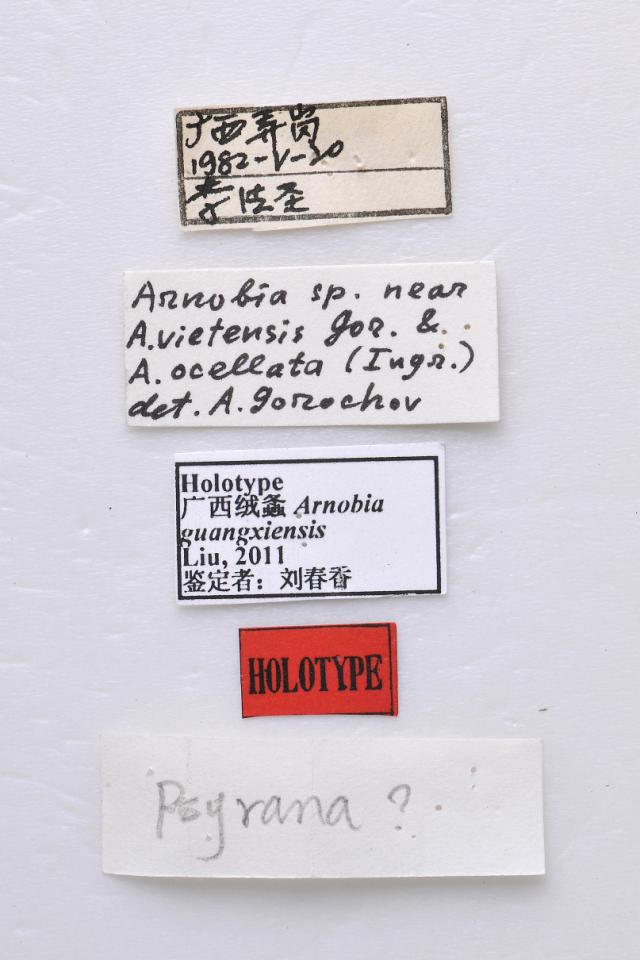 广西弄岗
1982-V-20
李法圣
Arnobia sp. near
A.vietensis Gor. &
A. ocellata (Ingr.)
det. A. Gorochov
Holotype
广西绒螽 Arnobia
guangxiensis
Liu, 2011
鉴定者：刘春香
HOLOTYPE
Psyrana ?